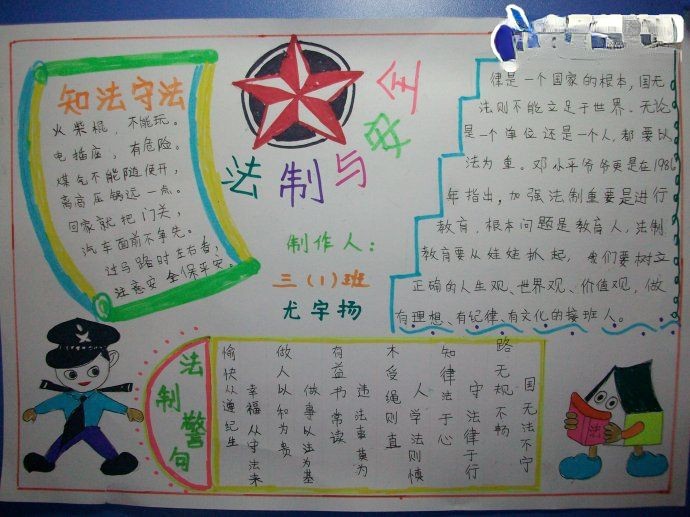 知法守法
火柴棍,不能玩。
电插座,有危险。
煤气不能随便开,
离高压锅远一点。
回家就把门关,
汽车面前不争先。
过马路时左右看,
注意安全保平安。
法制与安全
制作人:
三(1)班
尤宇扬
律是一个国家的根本,国无
法则不能立足于世界。无论
是一个单位还是一个人,都要以
法为重。邓小平爷爷更是在1986
年指出,加强法制重要是进行
教育,根本问题是教育人,法制
教育要从娃娃抓起,我们要树立
正确的人生观、世界观、价值观,做
有理想、有纪律、有文化的接班人。
法制警句
国无法不守
路无规不畅
守法律于行
知律法于心
人学法则慎
木受绳则直
违法事莫为
有益书常读
做事以法为基
做人以知为贵
幸福从守法来
愉快从遵纪生
法